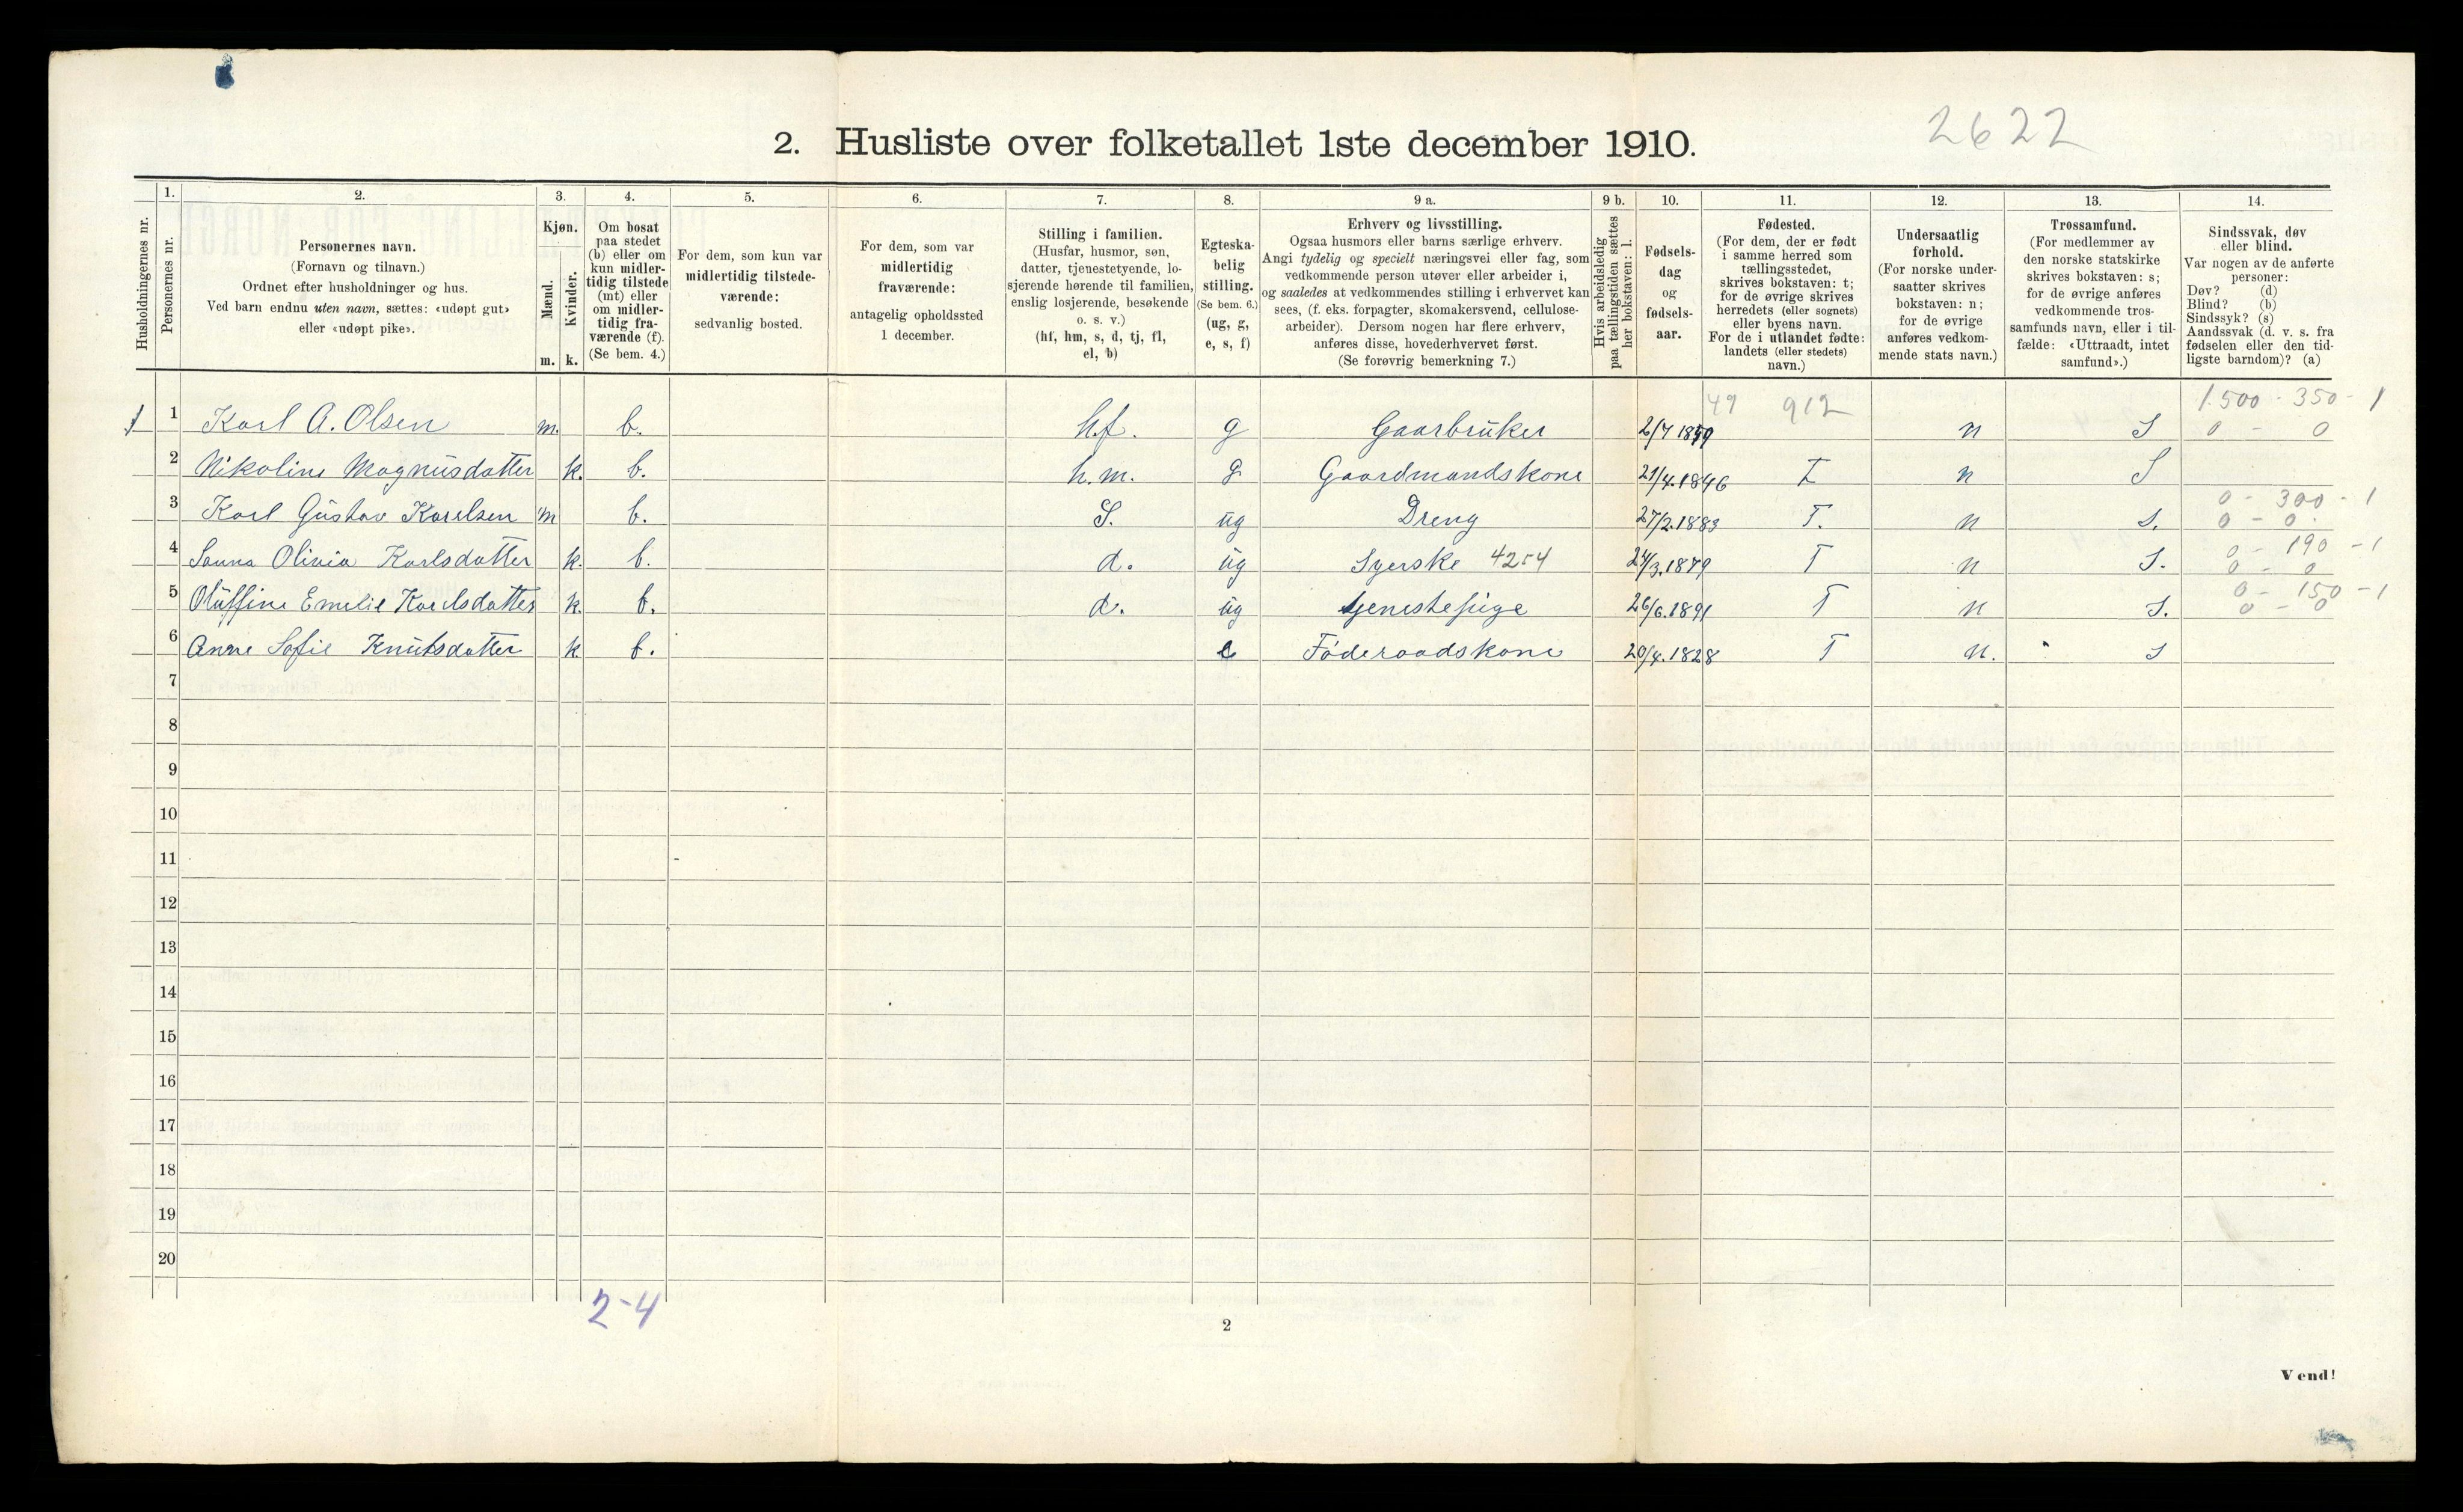 2622
2. Husliste over folketallet 1ste december 1910.
Husholdningernes nr.
1.
Personernes nr.
2.
Personernes navn.
(Fornavn og tilnavn.)
Ordnet efter husholdninger og hus.
Ved barn endnu uten navn, sættes: «udøpt gut»
eller «udøpt pike».
3.
Kjøn.
Mænd.
m.
Kvinder.
k.
4.
Om bosat
paa stedet
(b) eller om
kun midler-
tidig tilstede
(mt) eller
om midler-
tidig fra-
værende (f).
(Se bem. 4.)
5.
For dem, som kun var
midlertidig tilstede-
værende:
sedvanlig bosted.
6.
For dem, som var
midlertidig
fraværende:
antagelig opholdssted
1 december.
7.
Stilling i familien.
(Husfar, husmor, søn,
datter, tjenestetyende, lo-
sjerende hørende til familien,
enslig losjerende, besøkende
o. s. v.)
(hf, hm, s, d, tj, fl,
el, b)
8.
Egteska-
belig
stilling.
(Se bem. 6.)
(ug, g,
e, s, f)
9 a.
Erhverv og livsstilling.
Ogsaa husmors eller barns særlige erhverv.
Angi tydelig og specielt næringsvei eller fag, som
vedkommende person utøver eller arbeider i,
og saaledes at vedkommendes stilling i erhvervet kan
sees, (f. eks. forpagter, skomakersvend, cellulose-
arbeider). Dersom nogen har flere erhverv,
anføres disse, hovederhvervet først.
(Se forøvrig bemerkning 7.)
9 b.
Hvis arbeidsledig
paa tællingstiden sættes
her bokstaven: l.
10.
Fødsels-
dag
og
fødsels-
aar.
11.
Fødested.
(For dem, der er født
i samme herred som
tællingsstedet,
skrives bokstaven: t;
for de øvrige skrives
herredets (eller sognets)
eller byens navn.
For de i utlandet fødte:
landets (eller stedets)
navn.)
12.
Undersaatlig
forhold.
(For norske under-
saatter skrives
bokstaven: n;
for de øvrige
anføres vedkom-
mende stats navn.)
13.
Trossamfund.
(For medlemmer av
den norske statskirke
skrives bokstaven: s;
for de øvrige anføres
vedkommende tros-
samfunds navn, eller i til-
fælde: «Uttraadt, intet
samfund».)
14.
Sindssvak, døv
eller blind.
Var nogen av de anførte
personer:
Døv? (d)
Blind? (b)
Sindssyk? (s)
Aandssvak (d. v. s. fra
fødselen eller den tid-
ligste barndom)? (a)
49 912 1.500 - 350 - 1
1 1 Karl A. Olsen m. b. h.f. g Gaarbruker 2/7 1849 n S 0 - 0
2 Nikoline Magnusdatter k. b. h.m. g Gaardmandskone 21/4.1846 T n S
0 - 300 - 1
3 Karl Gustav Karelsen m b. S. ug Dreng 27/2.1883 T. n S. 0 - 0.
0 - 190 - 1
4 Sanna Olivia Karlsdatter k. b. d. ug Syerske 4254 24/3.1879 T n S. 0 - 0
0 - 150 - 1
5 Oluffine Emelie Karlsdatter k. b. d. ug tjenestepige 26/6.1891 T n S. 0 - 0
6 Anne Sofie Knutsdatter k b. e Föderaadskone 20/4.1828 T n. S
7
8
9
10
11
12
13
14
15
16
17
18
19
20
2-4
2
Vend!